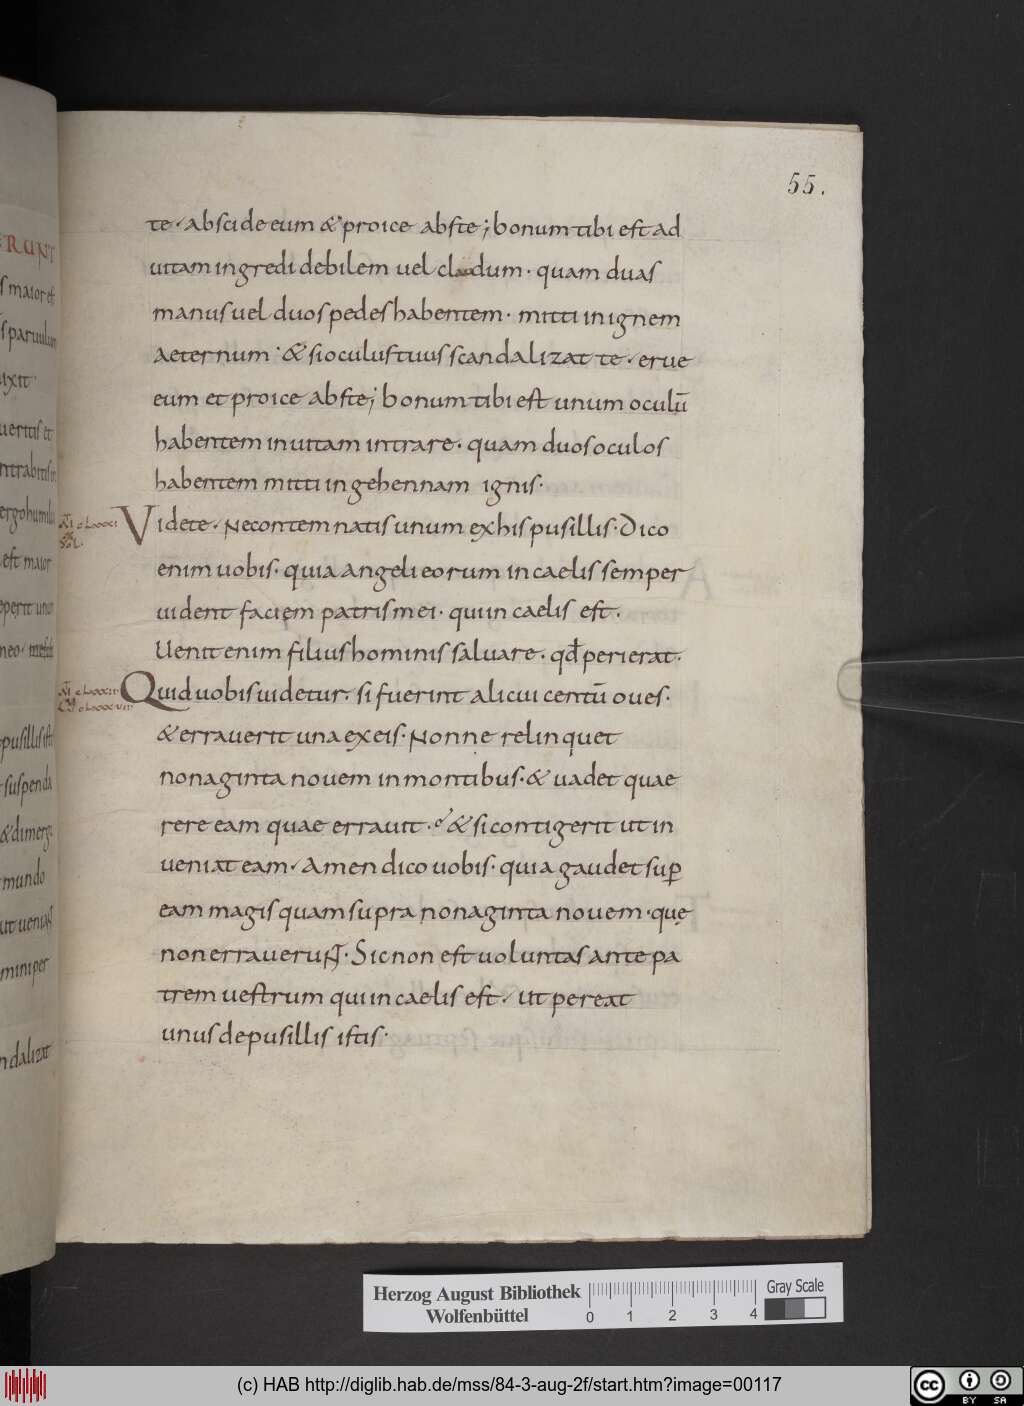 55.
te abscide eum & proice abste; bonum tibi est ad
uitam ingredi debilem uel claudum· quam duas
manus uel duos pedes habentem· mitti in ignem
aeternum· & si oculus tuus scandalizat te· erue
eum et proice abste; bonum tibi est unum oculū
habentem in uitam intrare· quam duos oculos
habentem mitti in gehennam ignis·
Videte· Necontemnatis unum ex his pusillis· Dico
enim uobis· quia angeli eorum in caelis semper
uident faciem patris mei· qui in caelis est·
Uenit enim filius hominis saluare· qđ perierat·
Quid uobis uidetur· si fuerint alicui centū oues·
& errauerit una ex eis· Nonne relinquet
nonaginta nouem in montibus· & uadet quae
rere eam quae errauit· & si contigerit ut in
ueniat eam· Amen dico uobis· quia gaudet sup̄
eam magis quam supra nonaginta nouem· quę
non errauerunt· Sic non est uoluntas ante pa
trem uestrum qui in caelis est· ut pereat
unus de pusillis istis·
RUNT
s maior e
s paruulum
ixit·
uertis et
ntrabitis in
ergo humilia
est maior
eperit unum
pusillis istis
suspenda
& dimerga
mundo
ut ueniat
homini per
ndalizat
Herzog August Bibliothek
Wolfenbüttel
0 1 2 3 4
Gray Scale
(c) HAB http://diglib.hab.de/mss/84-3-aug-2f/start.htm?image=00117
cc BY SA